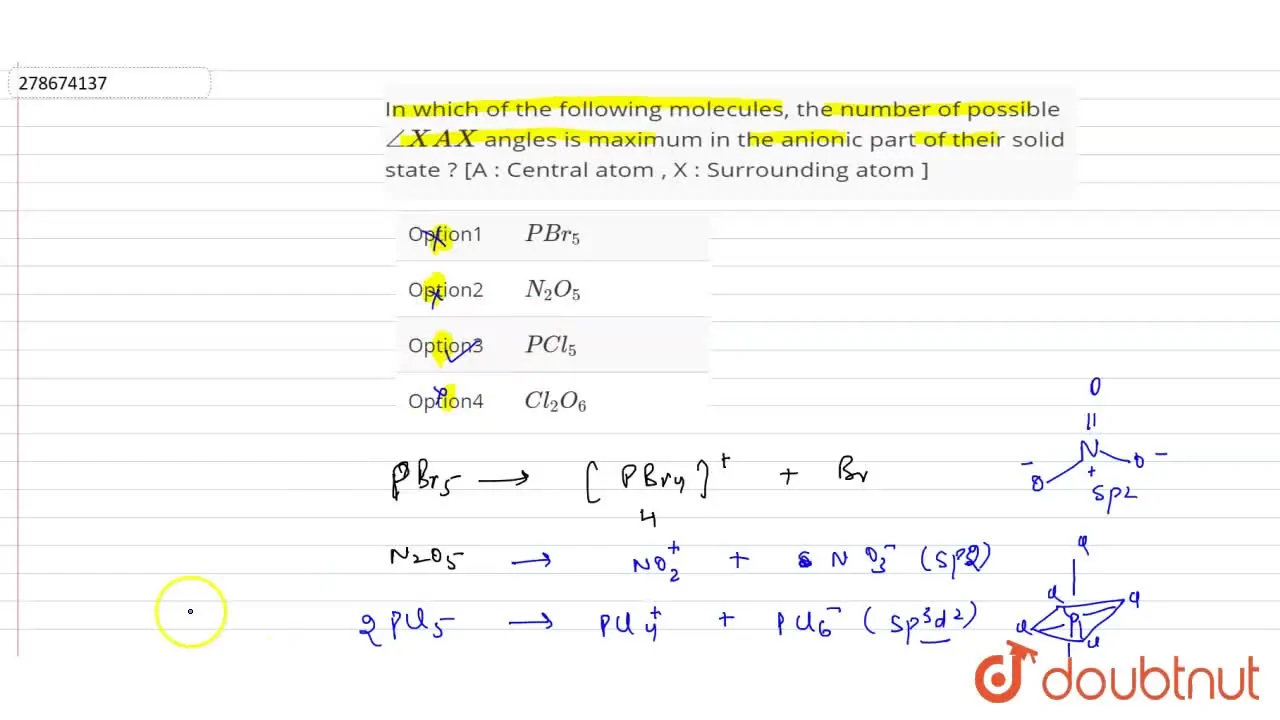 278674137
In which of the following molecules, the number of possible
∠XAX angles is maximum in the anionic part of their solid
state ? [A : Central atom , X : Surrounding atom ]
Option1 PBr₅
Option2 N₂O₅
Option3 PCl₅
Option4 Cl₂O₆
O
||
N
− O O −
+
sp2
PBr₅ → [PBr₄]⁺ + Br
4
N₂O₅ → NO₂⁺ + NO₃⁻ (sp2)
2PCl₅ → PCl₄⁺ + PCl₆⁻ (sp³d²)
Cl
Cl Cl
Cl P Cl
doubtnut